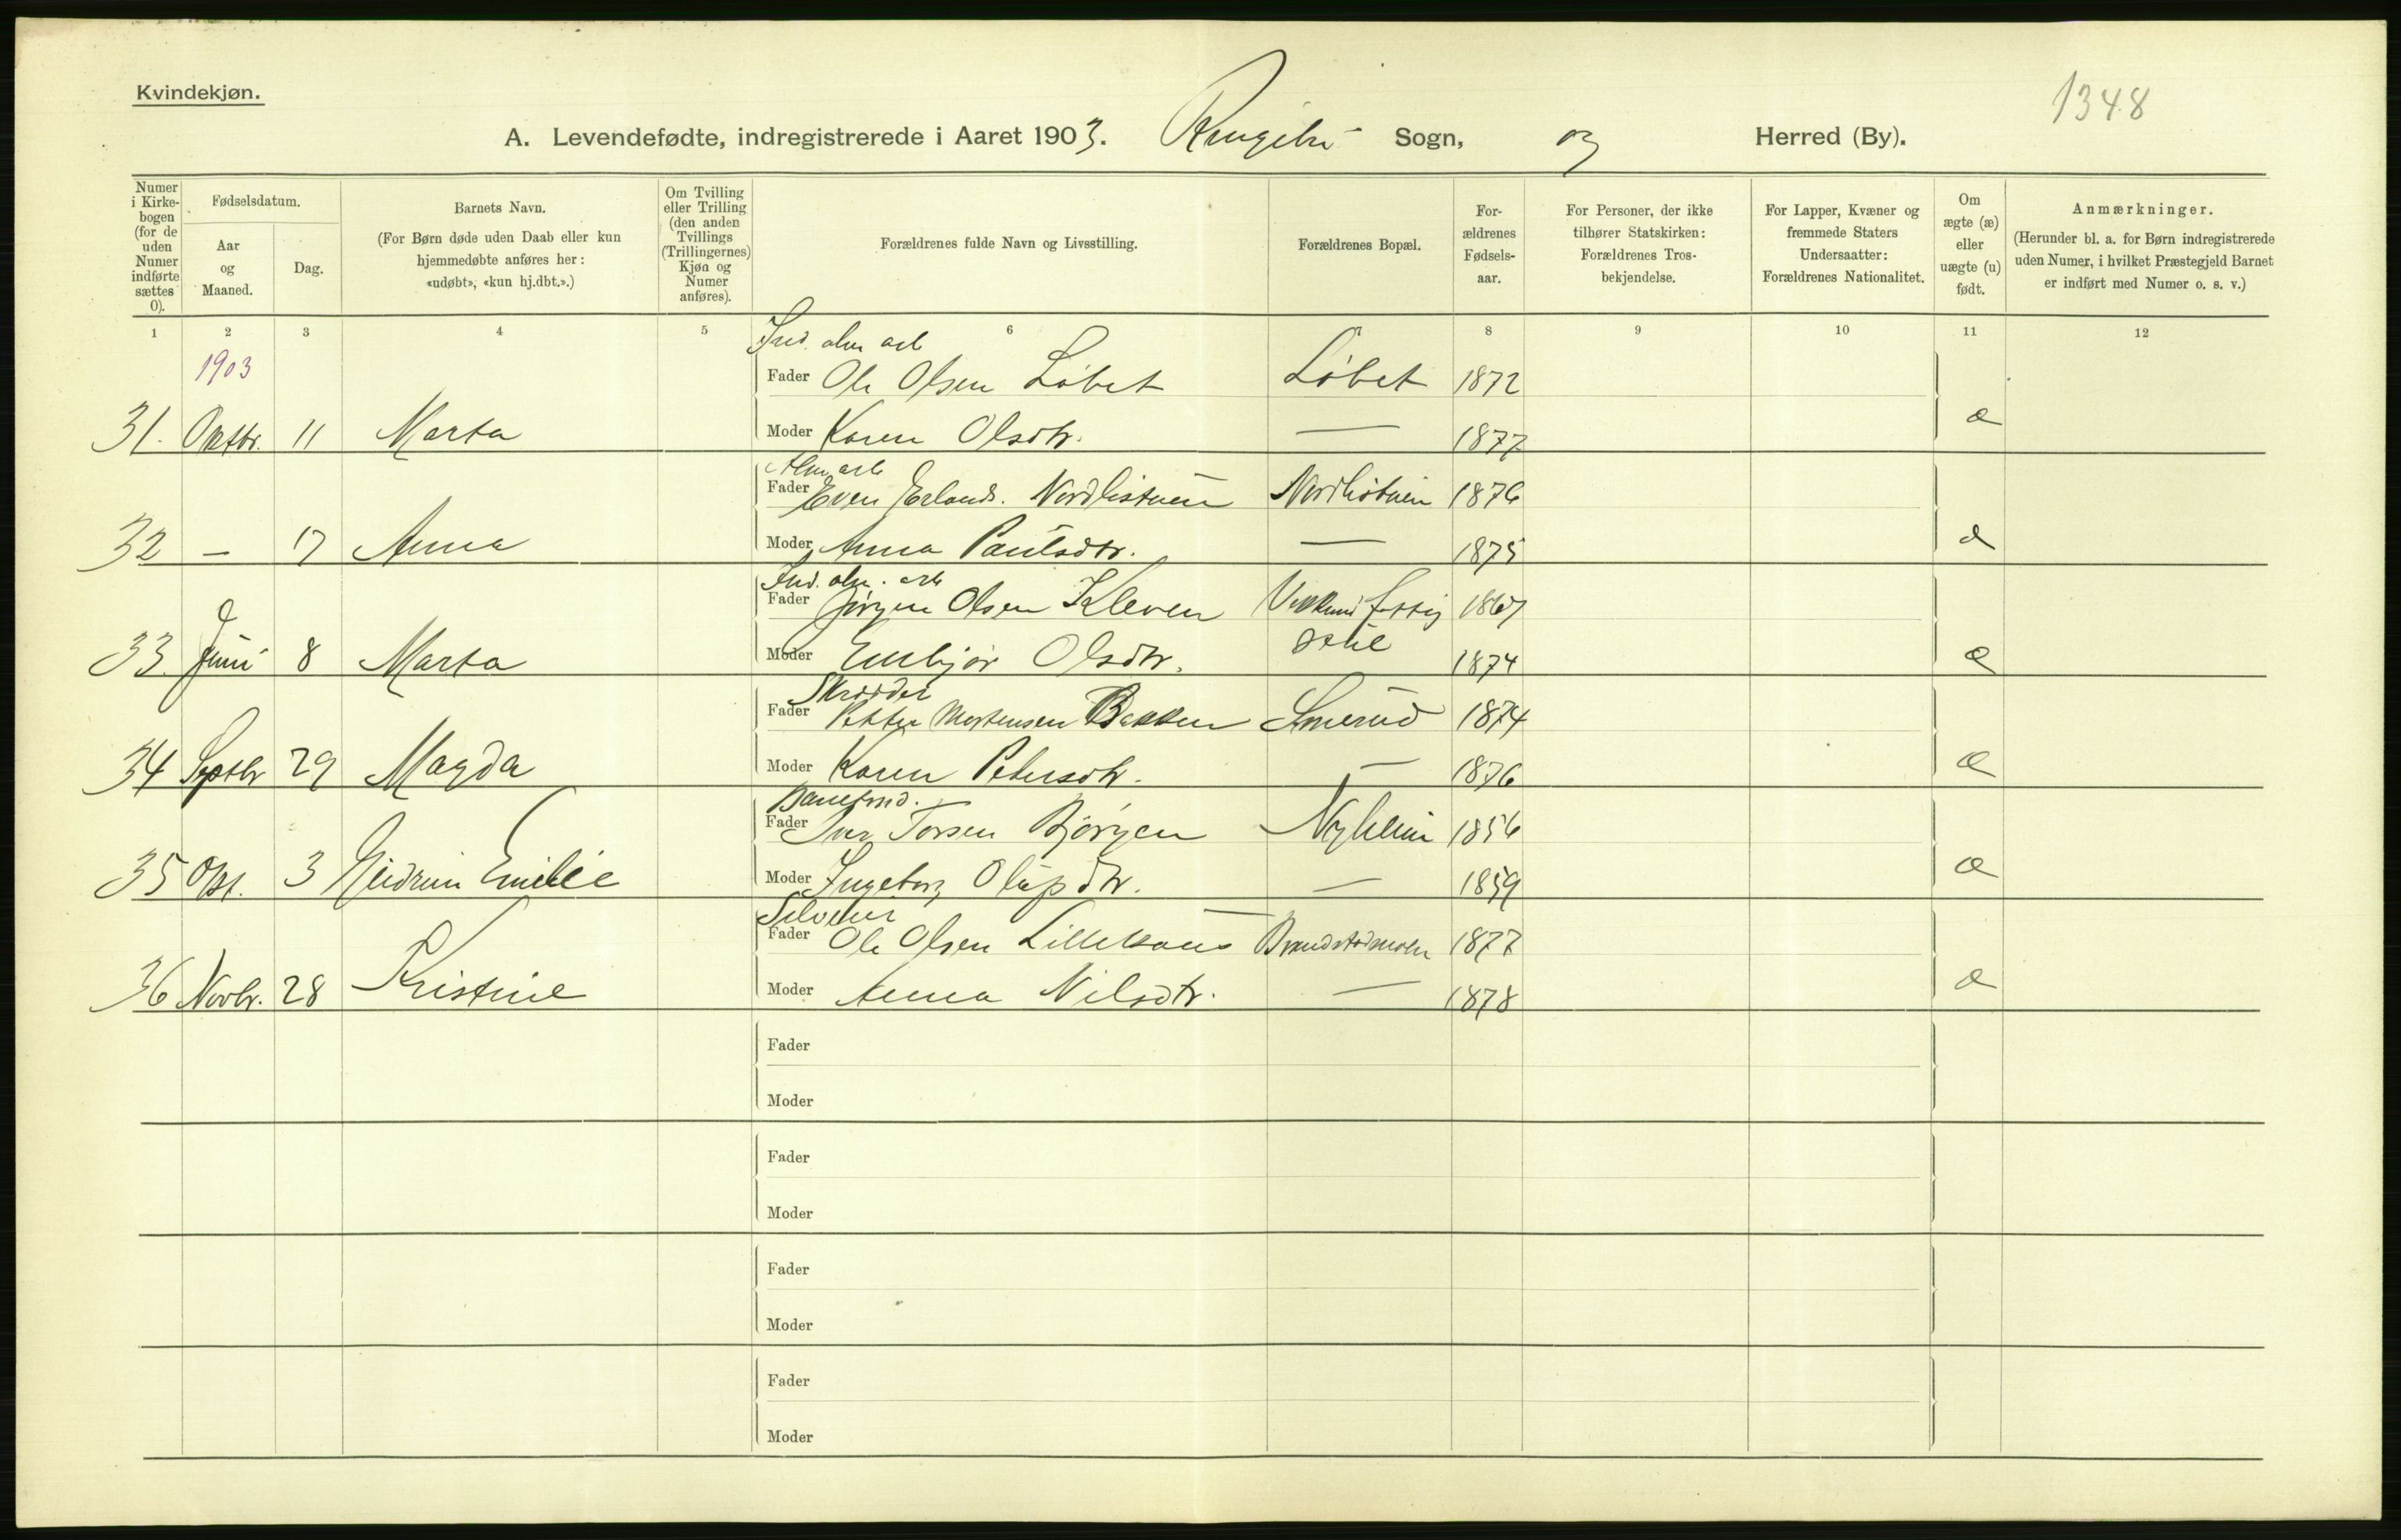 Kvindekjøn.
1348
A. Levendefødte, indregistrerede i Aaret 1903. Ringebu Sogn, og Herred (By).
Numer i Kirke-bogen (for de uden Numer indførte sættes 0).
Fødselsdatum.
Aar og Maaned.
Dag.
Barnets Navn.
(For Børn døde uden Daab eller kun hjemmedøbte anføres her: «udøbt», «kun hj.dbt.».)
Om Tvilling eller Trilling (den anden Tvillings (Trillingernes) Kjøn og Numer anføres).
Forældrenes fulde Navn og Livsstilling.
Forældrenes Bopæl.
For-ældrenes Fødsels-aar.
For Personer, der ikke tilhører Statskirken: Forældrenes Tros-bekjendelse.
For Lapper, Kvæner og fremmede Staters Undersaatter: Forældrenes Nationalitet.
Om ægte (æ) eller uægte (u) født.
Anmærkninger.
(Herunder bl. a. for Børn indregistrerede uden Numer, i hvilket Præstegjeld Barnet er indført med Numer o. s. v.)
1 2 3 4 5 6 7 8 9 10 11 12
1903
Ind. alm arb
Fader Ole Olsen Løbet Løbet 1872
31. Oktbr. 11 Marta Moder Karen Olsdtr. — 1877 æ
Alm. arb
Fader Even Erlands. Nordlistuen Nordlistuen 1876
32 — 17 Anna Moder Anna Paulsdtr. — 1875 æ
Ind. alm. arb
Fader Jørgen Olsen Kleven 1867
33. Juni 8 Marta Moder Embjør Olsdtr. 1874 æ
Skrædder
Fader Petter Mortensen Bakken Smerud 1874
34 Septbr 29 Magda Moder Karen Petersdtr. — 1876 æ
Fader Iver Torsen Bjørgen Nyheim 1856
35 Okt. 3 Gudrun Emilie Moder Ingeborg Olupdtr. — 1859 æ
Selveier
Fader Ole Olsen Brandstadmoen 1877
36 Novbr. 28 Kristine Moder Anna Nilsdtr. — 1878 æ
Fader
Moder
Fader
Moder
Fader
Moder
Fader
Moder